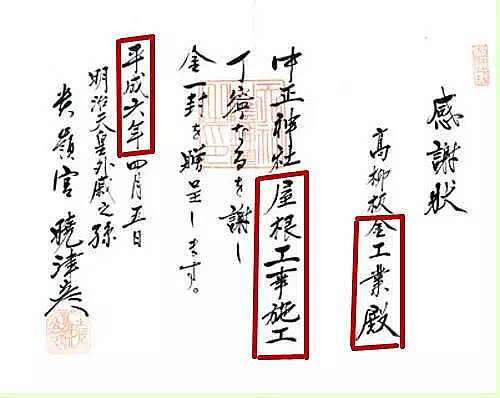 感謝状
高柳板金工業殿
中正神社屋根工事施工
丁寧なるを謝し
金一封を贈呈します。
平成六年四月五日
明治天皇外戚之孫
貴嶺宮 曉津彦